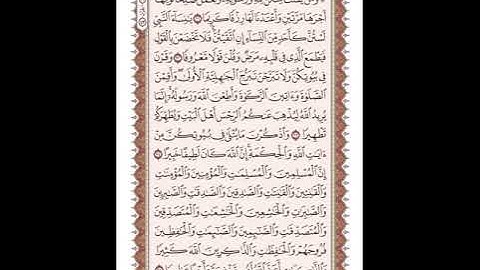 أَجْرَهَا مَرَّتَيْنِ وَأَعْتَدْنَا لَهَا رِزْقًا كَرِيمًا ٣١ يَٰنِسَآءَ ٱلنَّبِيِّ
لَسْتُنَّ كَأَحَدٍ مِّنَ ٱلنِّسَآءِ إِنِ ٱتَّقَيْتُنَّ فَلَا تَخْضَعْنَ بِٱلْقَوْلِ
فَيَطْمَعَ ٱلَّذِي فِي قَلْبِهِۦ مَرَضٌ وَقُلْنَ قَوْلًا مَّعْرُوفًا ٣٢ وَقَرْنَ
فِي بُيُوتِكُنَّ وَلَا تَبَرَّجْنَ تَبَرُّجَ ٱلْجَٰهِلِيَّةِ ٱلْأُولَىٰ وَأَقِمْنَ
ٱلصَّلَوٰةَ وَءَاتِينَ ٱلزَّكَوٰةَ وَأَطِعْنَ ٱللَّهَ وَرَسُولَهُۥٓ إِنَّمَا
يُرِيدُ ٱللَّهُ لِيُذْهِبَ عَنكُمُ ٱلرِّجْسَ أَهْلَ ٱلْبَيْتِ وَيُطَهِّرَكُمْ
تَطْهِيرًا ٣٣ وَٱذْكُرْنَ مَا يُتْلَىٰ فِي بُيُوتِكُنَّ مِنْ
ءَايَٰتِ ٱللَّهِ وَٱلْحِكْمَةِ إِنَّ ٱللَّهَ كَانَ لَطِيفًا خَبِيرًا ٣٤
إِنَّ ٱلْمُسْلِمِينَ وَٱلْمُسْلِمَٰتِ وَٱلْمُؤْمِنِينَ وَٱلْمُؤْمِنَٰتِ
وَٱلْقَٰنِتِينَ وَٱلْقَٰنِتَٰتِ وَٱلصَّٰدِقِينَ وَٱلصَّٰدِقَٰتِ وَٱلصَّٰبِرِينَ
وَٱلصَّٰبِرَٰتِ وَٱلْخَٰشِعِينَ وَٱلْخَٰشِعَٰتِ وَٱلْمُتَصَدِّقِينَ
وَٱلْمُتَصَدِّقَٰتِ وَٱلصَّٰٓئِمِينَ وَٱلصَّٰٓئِمَٰتِ وَٱلْحَٰفِظِينَ
فُرُوجَهُمْ وَٱلْحَٰفِظَٰتِ وَٱلذَّٰكِرِينَ ٱللَّهَ كَثِيرًا